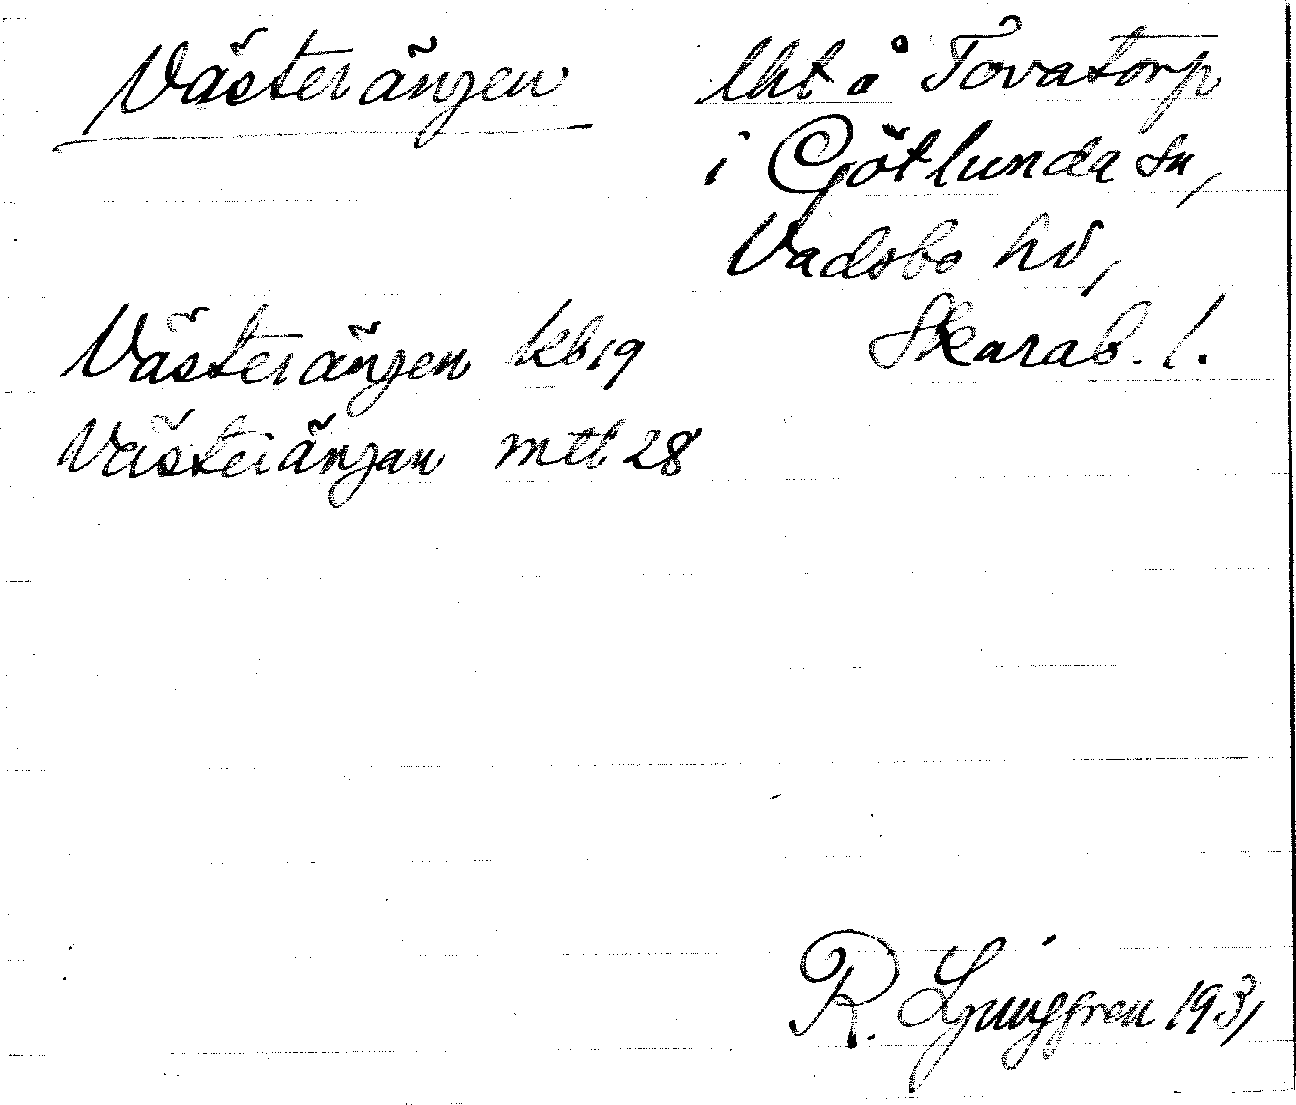 Västerängen
Lht å Tovatorp
i Götlunda sn,
Vadsbo hd,
Skarab. l.
Västerängen kb 19
Västerängan mtl 28
R. Ljunggren 1931